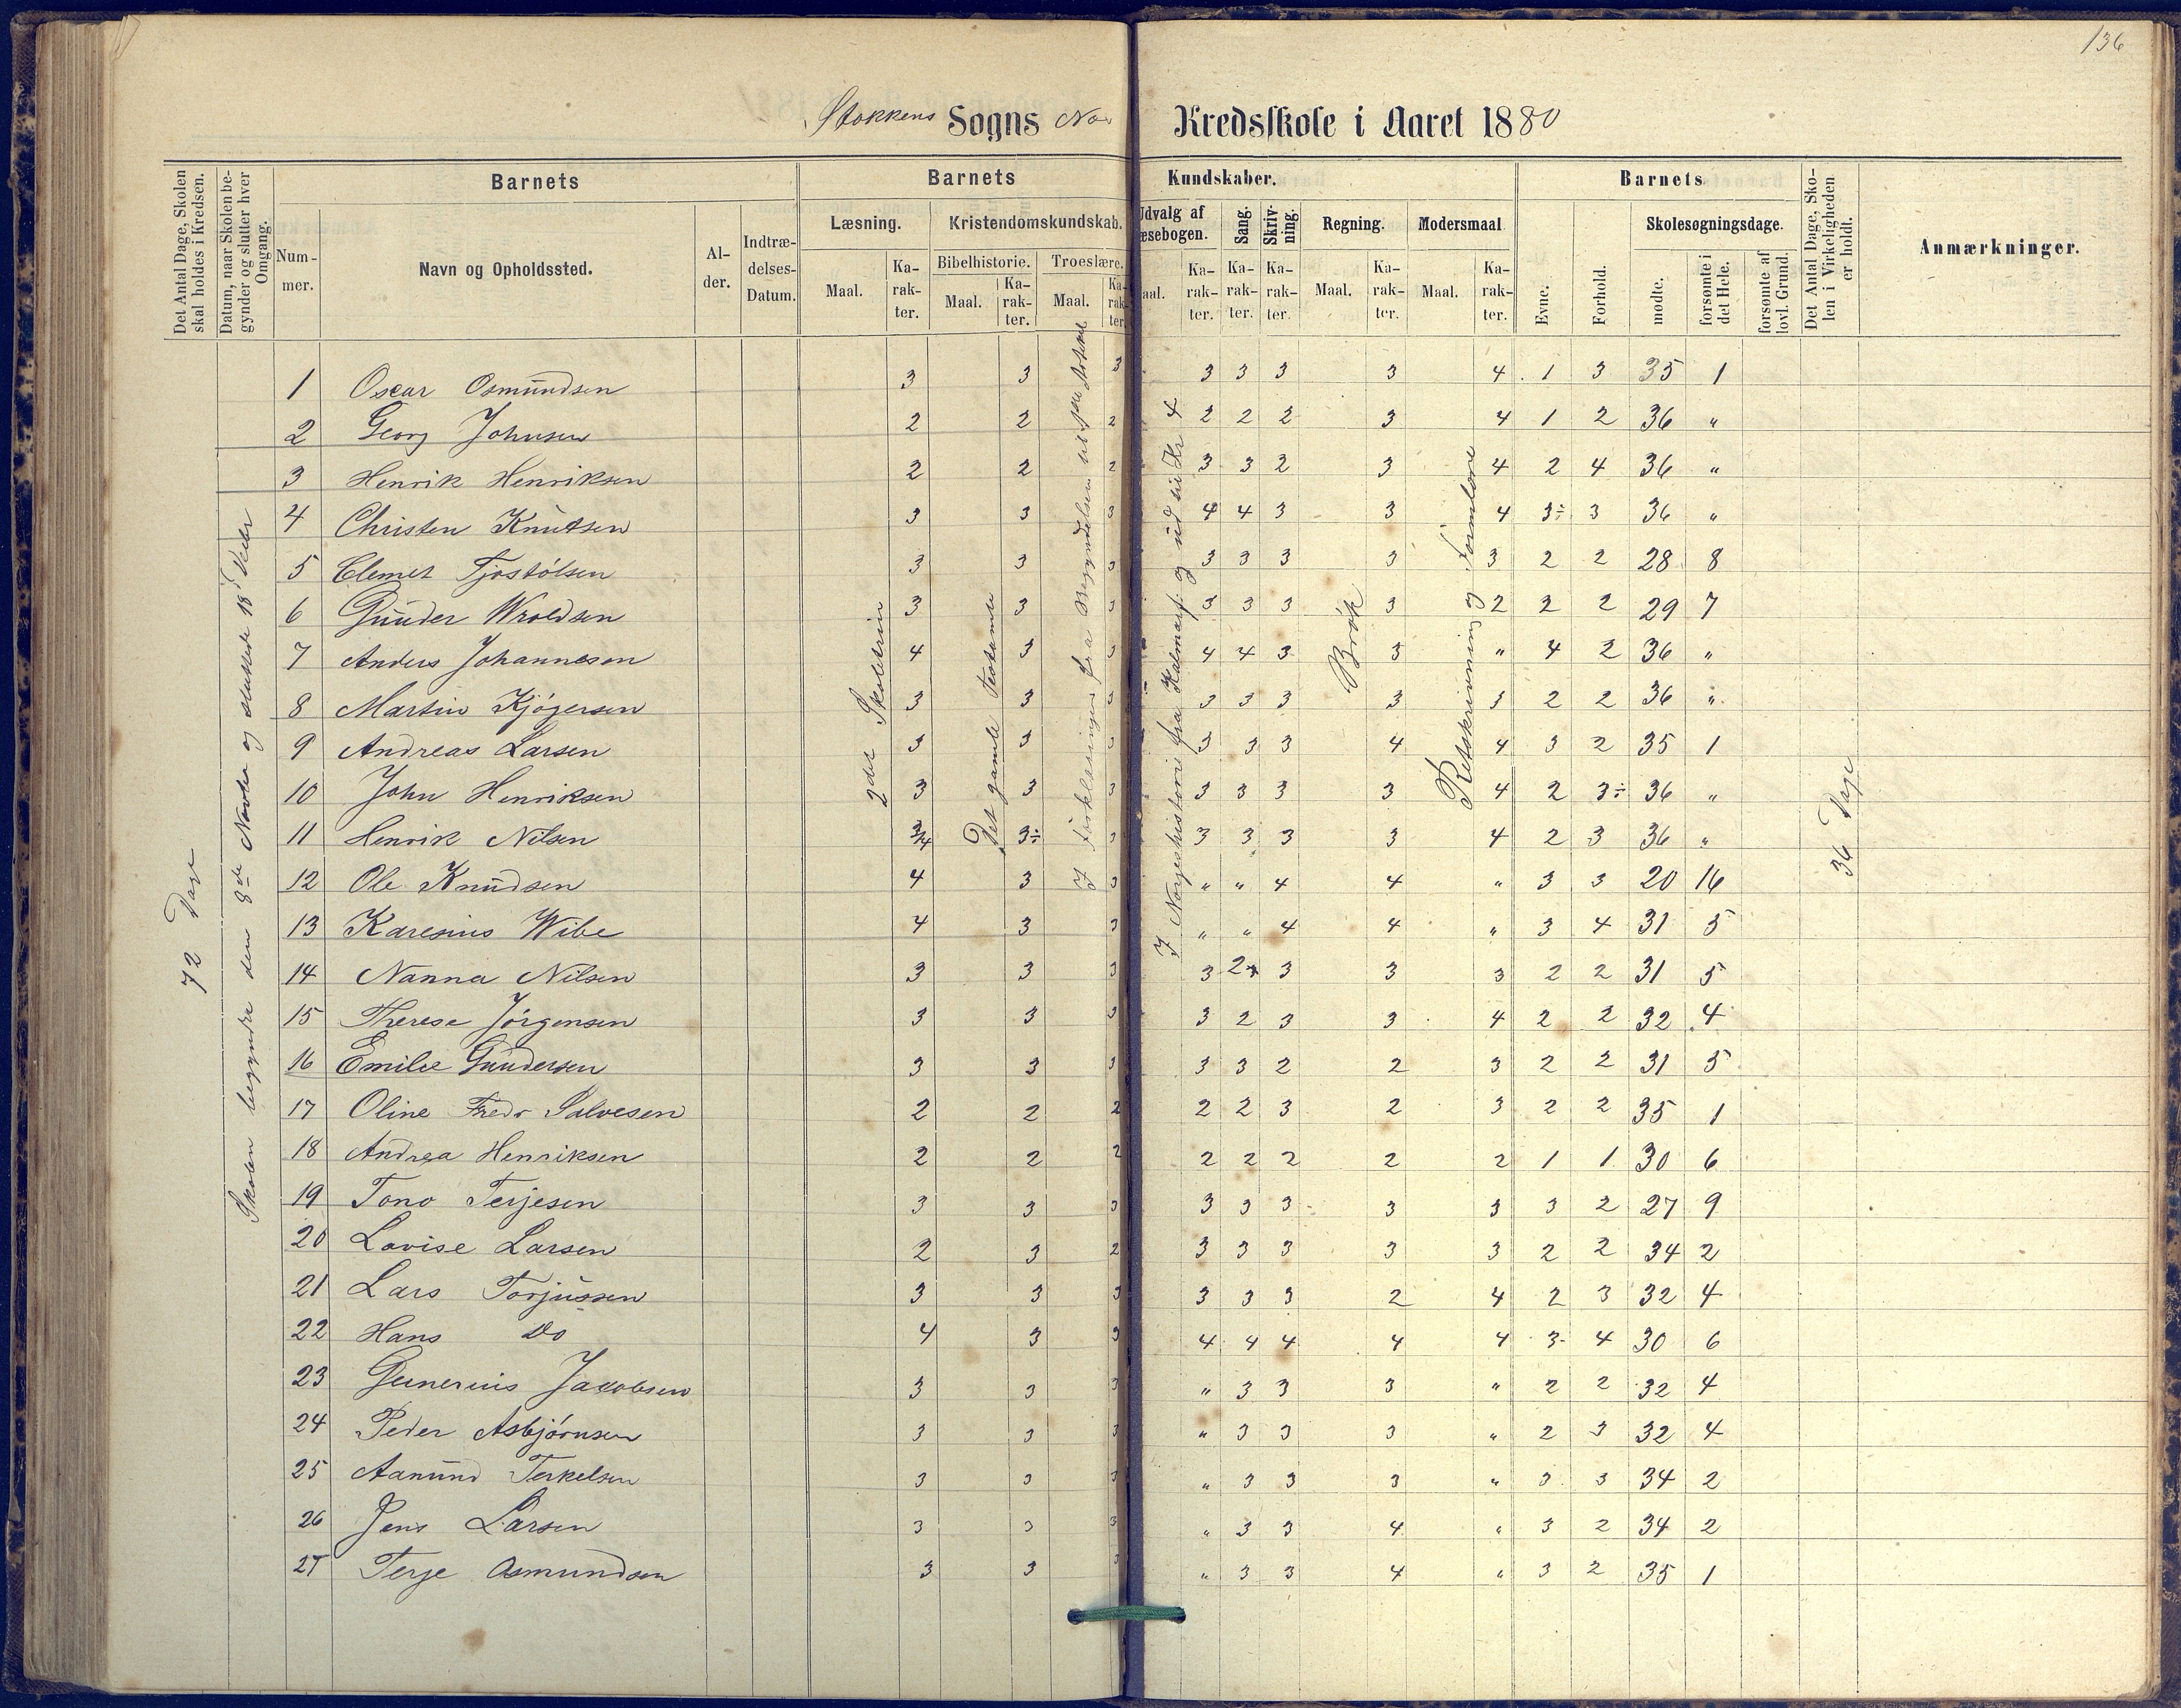 136
Stokkens Sogns No Kredsskole i Aaret 1880
Det Antal Dage, Skolen skal holdes i Kredsen.
Datum, naar Skolen begynder og slutter hver Omgang.
Barnets
Nummer.
Navn og Opholdssted.
Alder.
Indtrædelses-Datum.
Barnets Kundskaber.
Læsning.
Maal.
Karakter.
Kristendomskundskab.
Bibelhistorie.
Maal.
Karakter.
Troeslære.
Maal.
Karakter.
Udvalg af
æsebogen.
aal.
Karakter.
Sang.
Karakter.
Skrivning.
Karakter.
Regning.
Maal.
Karakter.
Modersmaal
Maal.
Karakter.
Barnets
Evne.
Forhold.
Skolesøgningsdage.
mødte.
forsømte i det Hele.
forsømte af lovl. Grund.
Det Antal Dage, Skolen i Virkeligheden er holdt.
Anmærkninger.
72 Dage
Skolen begyndte den 8de Novbr og sluttede 18 Decbr
2det Skoletrin
Det gamle Testamente
I Forklaringen fra Begyndelsen til
I Norgeshistorie fra Kalmarf. og ud til Kr 4
Brøk
Retskrivning og Formlære
36 Dage
1 Oscar Osmundsen 3 3 3 3 3 3 3 4 1 3 35 1
2 Georg Johnsen 2 2 2 2 2 2 3 4 1 2 36 "
3 Henrik Henriksen 2 2 2 3 3 2 3 4 2 4 36 "
4 Christen Knutsen 3 3 3 4 4 3 3 4 3÷ 3 36 "
5 Clemet Tjostólsen 3 3 3 3 3 3 3 3 2 2 28 8
6 Gunder Wroldsen 3 3 3 3 3 3 3 2 2 2 29 7
7 Anders Johannesen 4 3 3 4 4 3 3 " 4 2 36 "
8 Martin Kjógersen 3 3 3 3 3 3 3 3 2 2 36 "
9 Andreas Larsen 3 3 3 3 3 3 4 4 3 2 35 1
10 John Henriksen 3 3 3 3 3 3 3 4 2 3÷ 36 "
11 Henrik Nilsen 3/4 3÷ 3 3 3 3 3 4 2 3 36 "
12 Ole Knudsen 4 3 3 " " 4 4 " 3 3 20 16
13 Karenius Wibe 4 3 3 " " 4 4 " 3 4 31 5
14 Nanna Nilsen 3 3 3 3 2 3 3 3 2 2 31 5
15 Therese Jórgensen 3 3 3 3 2 3 3 4 2 2 32 4
16 Emilie Gundersen 3 3 3 3 3 2 2 3 2 2 31 5
17 Oline Fredr Salvesen 2 2 2 2 2 3 2 3 2 2 35 1
18 Andrea Henriksen 2 2 2 2 2 2 2 2 1 1 30 6
19 Tono Terjesen 3 3 3 3 3 3 3 3 3 2 27 9
20 Lovise Larsen 2 3 2 3 3 3 3 3 2 2 34 2
21 Lars Torjussen 3 3 3 3 3 3 2 4 2 3 32 4
22 Hans Do 4 3 3 4 4 4 4 4 3 4 30 6
23 Gunerius Jacobsen 3 3 3 " 3 3 3 " 2 2 32 4
24 Peder Asbjörnsen 3 3 3 " 3 3 3 " 2 3 32 4
25 Aanund Terkelsen 3 3 3 " 3 3 3 " 3 3 34 2
26 Jens Larsen 3 3 3 " 3 3 4 " 3 2 34 2
27 Terje Osmundsen 3 3 3 " 3 3 4 " 3 2 35 1